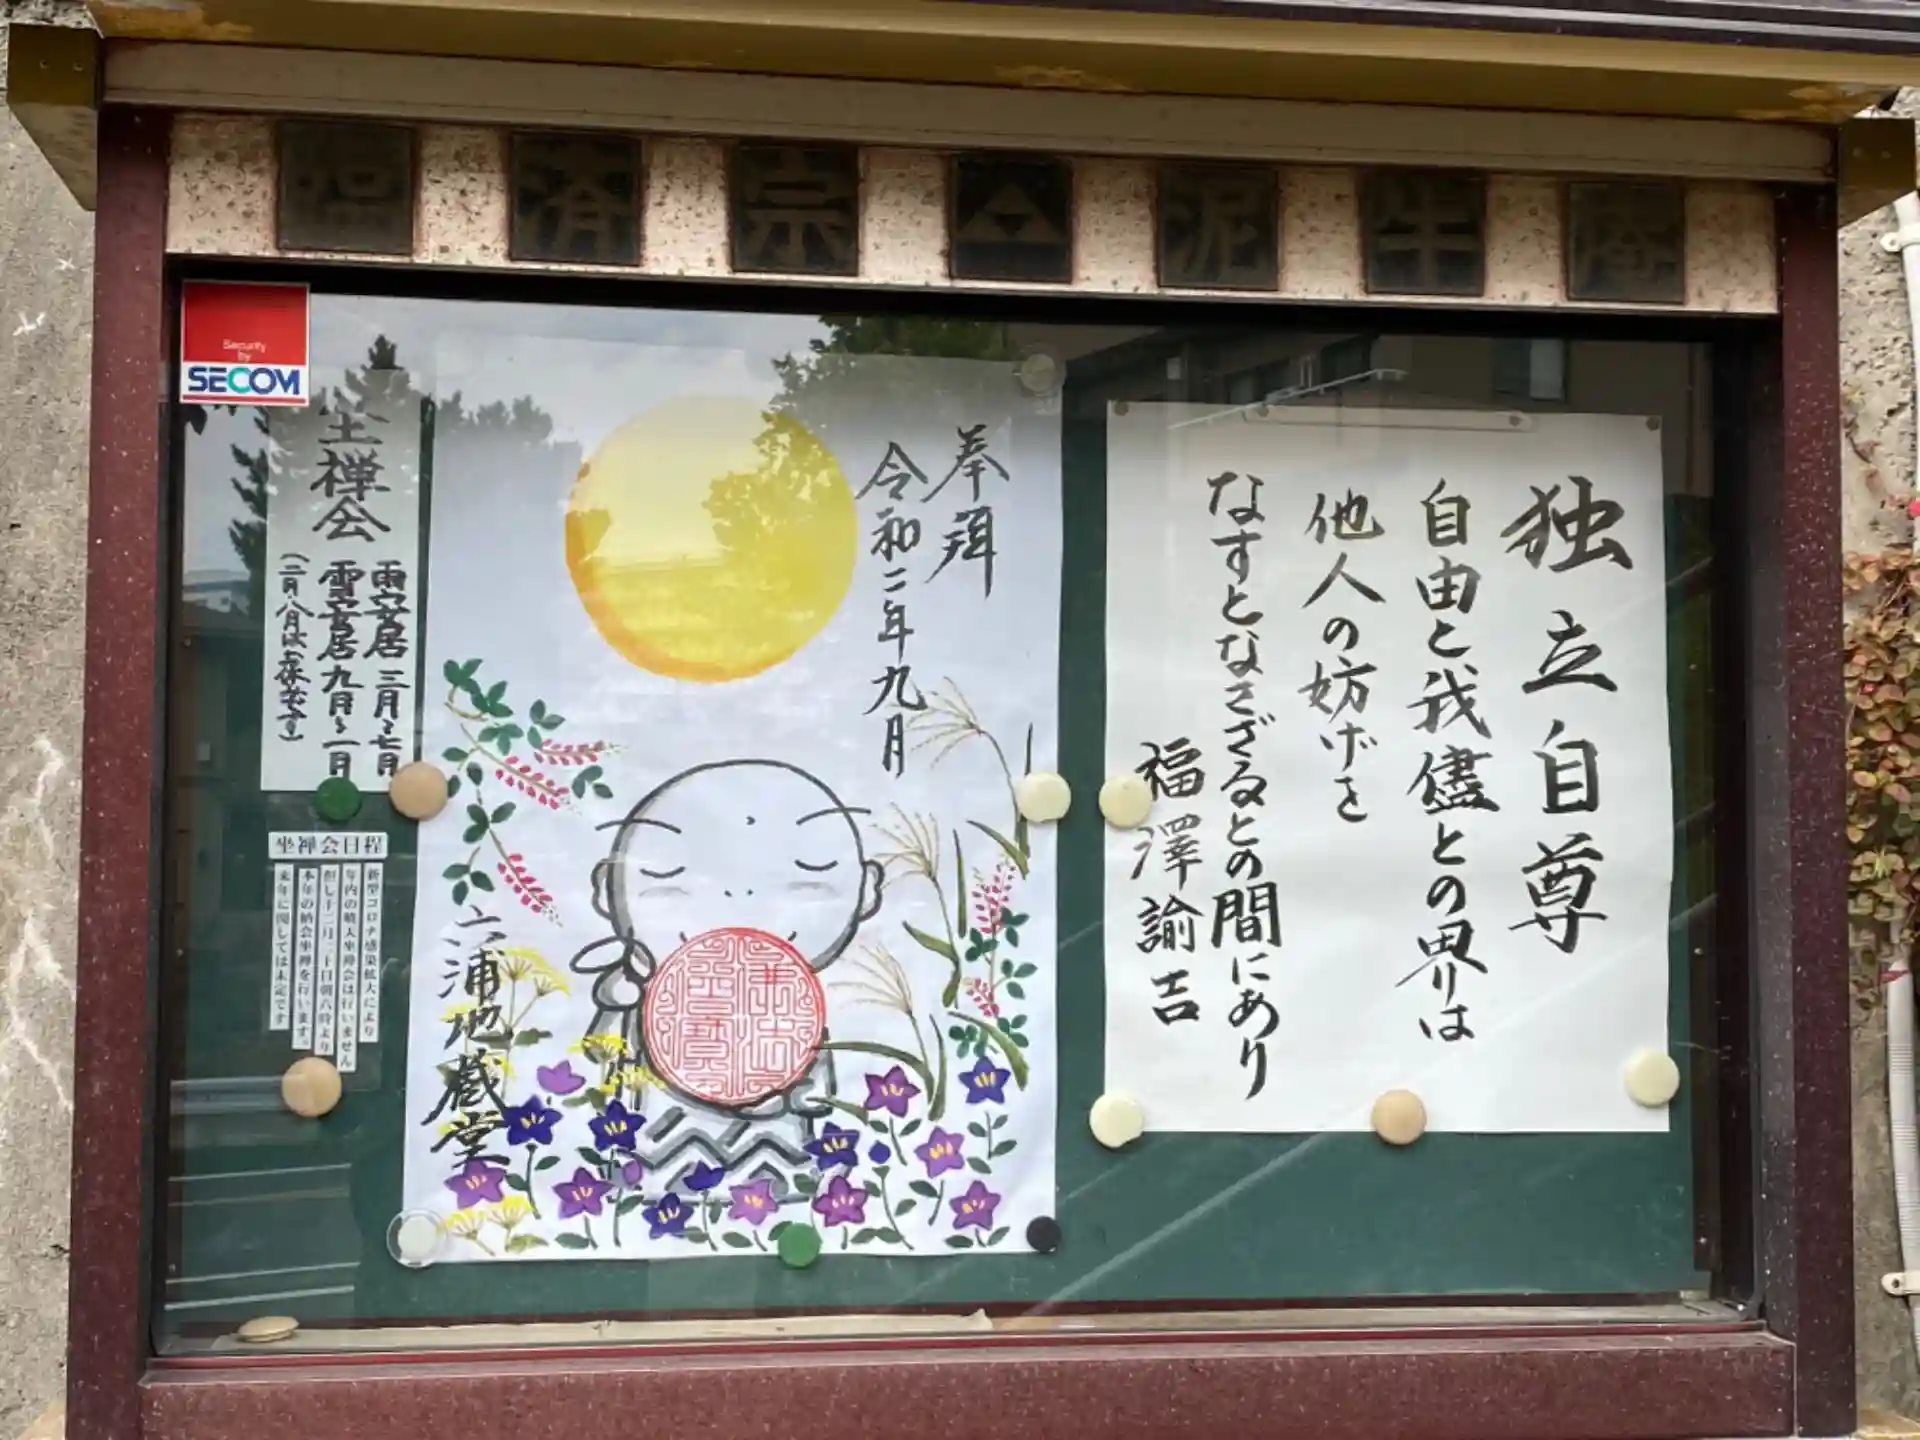 臨済宗 泥牛庵
Security
by
SECOM
独立自尊
自由と我儘との界は
他人の妨げを
なすとなさざるとの間にあり
福澤諭吉
奉拝
令和二年九月
六浦地蔵堂
坐禅会
雨安居 三月〜七月
雪安居 九月〜一月
(二月・八月はお休みです)
坐禅会日程
新型コロナ感染拡大により
年内の暁天坐禅会は行いません
但し十二月三十日朝六時より
本年の納会坐禅を行います。
来年に関しては未定です